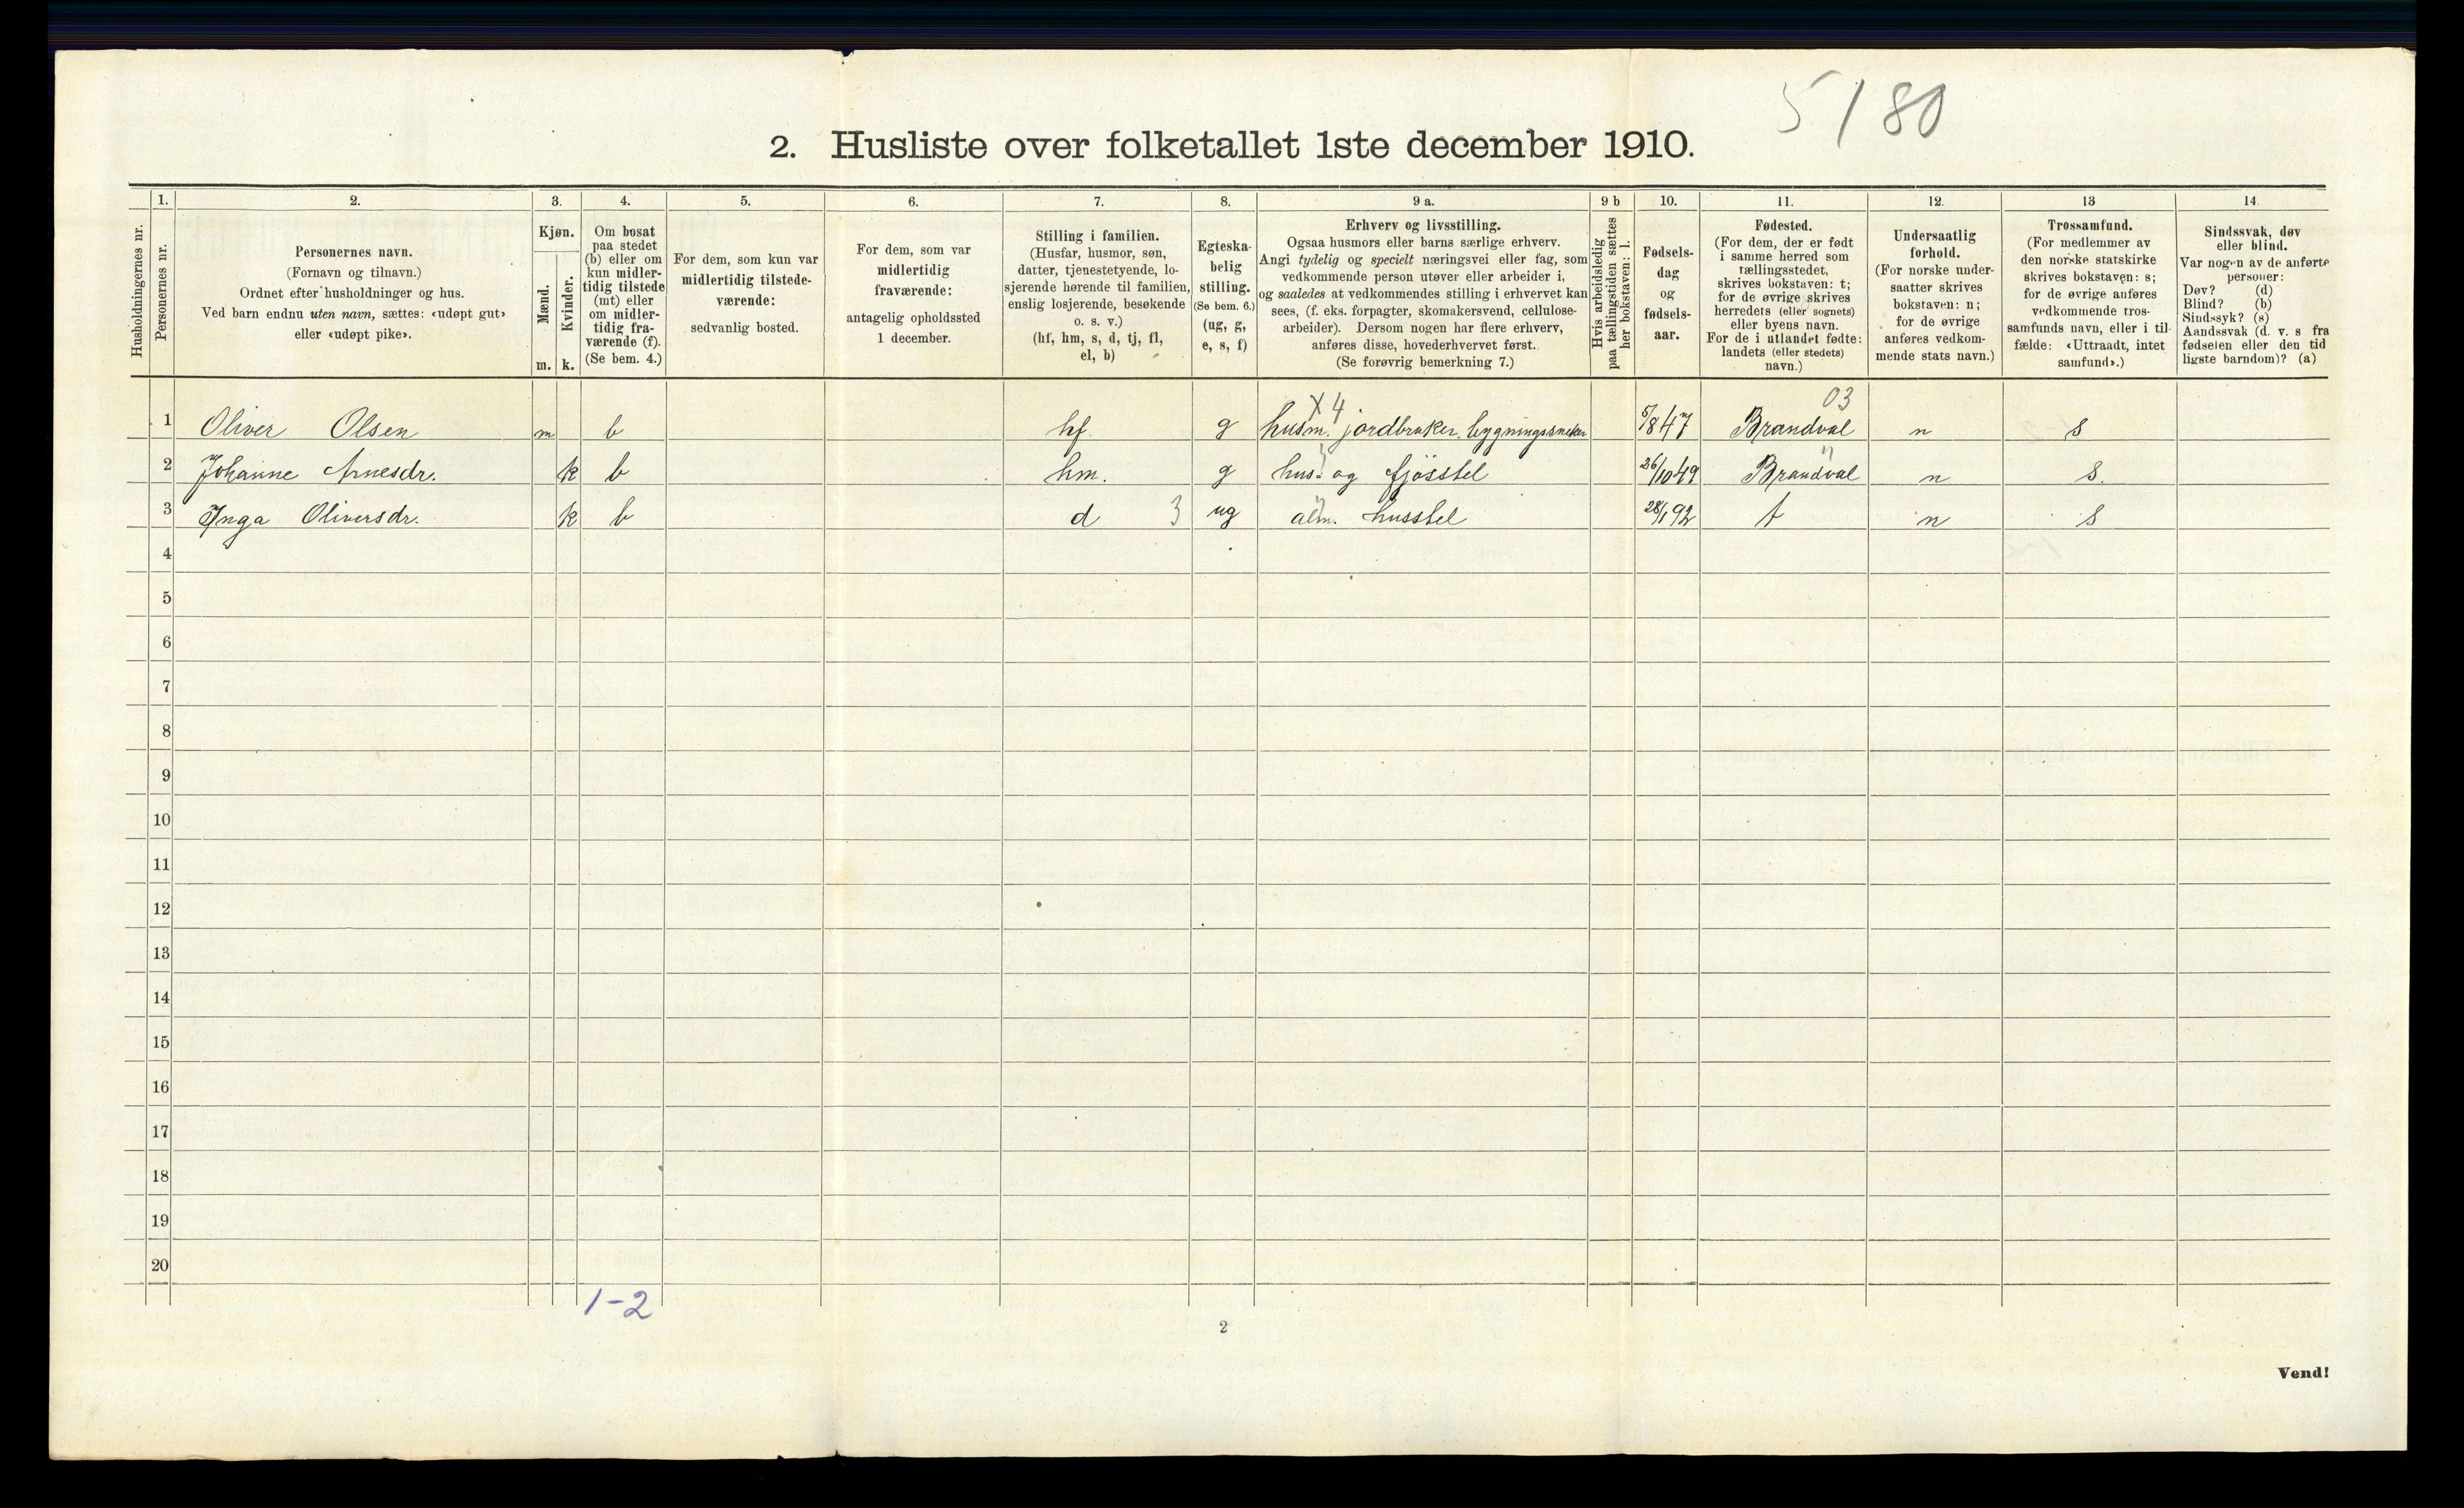 5/80
2. Husliste over folketallet 1ste december 1910.
Husholdningernes nr.
1.
Personernes nr.
2.
Personernes navn.
(Fornavn og tilnavn.)
Ordnet efter husholdninger og hus.
Ved barn endnu uten navn, sættes: «udøpt gut»
eller «udøpt pike».
3.
Kjøn.
Mænd.
Kvinder.
m. k.
4.
Om bosat
paa stedet
(b) eller om
kun midler-
tidig tilstede
(mt) eller
om midler-
tidig fra-
værende (f).
(Se bem. 4.)
5.
For dem, som kun var
midlertidig tilstede-
værende:
sedvanlig bosted.
6.
For dem, som var
midlertidig
fraværende:
antagelig opholdssted
1 december.
7.
Stilling i familien.
(Husfar, husmor, søn,
datter, tjenestetyende, lo-
sjerende hørende til familien,
enslig losjerende, besøkende
o. s. v.)
(hf, hm, s, d, tj, fl,
el, b)
8.
Egteska-
belig
stilling.
(Se bem. 6.)
(ug, g,
e, s, f)
9 a.
Erhverv og livsstilling.
Ogsaa husmors eller barns særlige erhverv.
Angi tydelig og specielt næringsvei eller fag, som
vedkommende person utøver eller arbeider i,
og saaledes at vedkommendes stilling i erhvervet kan
sees, (f. eks. forpagter, skomakersvend, cellulose-
arbeider). Dersom nogen har flere erhverv,
anføres disse, hovederhvervet først.
(Se forøvrig bemerkning 7.)
9 b
Hvis arbeidsledig
paa tællingstiden sættes
her bokstaven: l.
10.
Fødsels-
dag
og
fødsels-
aar.
11.
Fødested.
(For dem, der er født
i samme herred som
tællingsstedet,
skrives bokstaven: t;
for de øvrige skrives
herredets (eller sognets)
eller byens navn.
For de i utlandet fødte:
landets (eller stedets)
navn.)
12.
Undersaatlig
forhold.
(For norske under-
saatter skrives
bokstaven: n;
for de øvrige
anføres vedkom-
mende stats navn.)
13
Trossamfund.
(For medlemmer av
den norske statskirke
skrives bokstaven: s;
for de øvrige anføres
vedkommende tros-
samfunds navn, eller i til-
fælde: «Uttraadt, intet
samfund».)
14.
Sindssvak, døv
eller blind.
Var nogen av de anførte
personer:
Døv? (d)
Blind? (b)
Sindssyk? (s)
Aandssvak (d. v. s fra
fødselen eller den tid
ligste barndom)? (a)
X 4 03
1 Oliver Olsen m b hf. g husm. jordbruker. bygningssneker 5/8 47 Brandval n s
2 Johanne Arnesdr. k b hm. g hus- og fjösstel 26/10 49 Brandval n s.
3 Inga Oliversdr. k b d 3 ug alm. husstel 28/1 92 t n s
4
5
6
7
8
9
10
11
12
13
14
15
16
17
18
19
20
1-2
2
Vend!